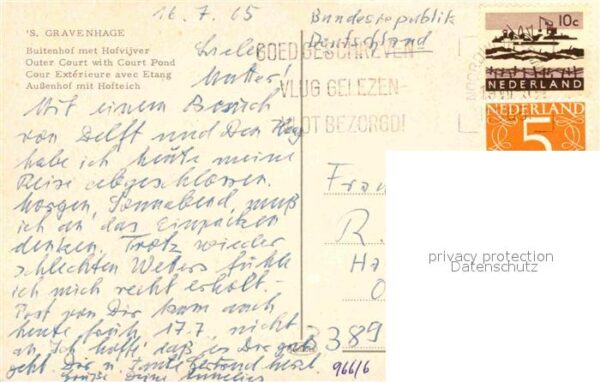 16.7.65
'S. GRAVENHAGE
Buitenhof met Hofvijver
Outer Court with Court Pond
Cour Extérieure avec Etang
Außenhof mit Hofteich
Liebe
Mutter!
Mit einem Besuch
von Delft und Den Haag
habe ich heute meine
Reise abgeschlossen.
Morgen, Sonnabend, muß
ich an das Einpacken
denken. Trotz wieder
schlechten Wetters fühle
ich mich recht erholt. -
Post von Dir kam auch
heute früh 17.7. nicht
an. Ich hoffe, daß es Dir gut
geht. Dir u. Tante herzl.
Grüße Deine
Bundesrepublik
Deutschland
GOED GESCHREVEN
VLUG GELEZEN-
VLOT BEZORGD!
10c
NEDERLAND
NEDERLAND
5
R.
3389
966/6
privacy protection
Datenschutz